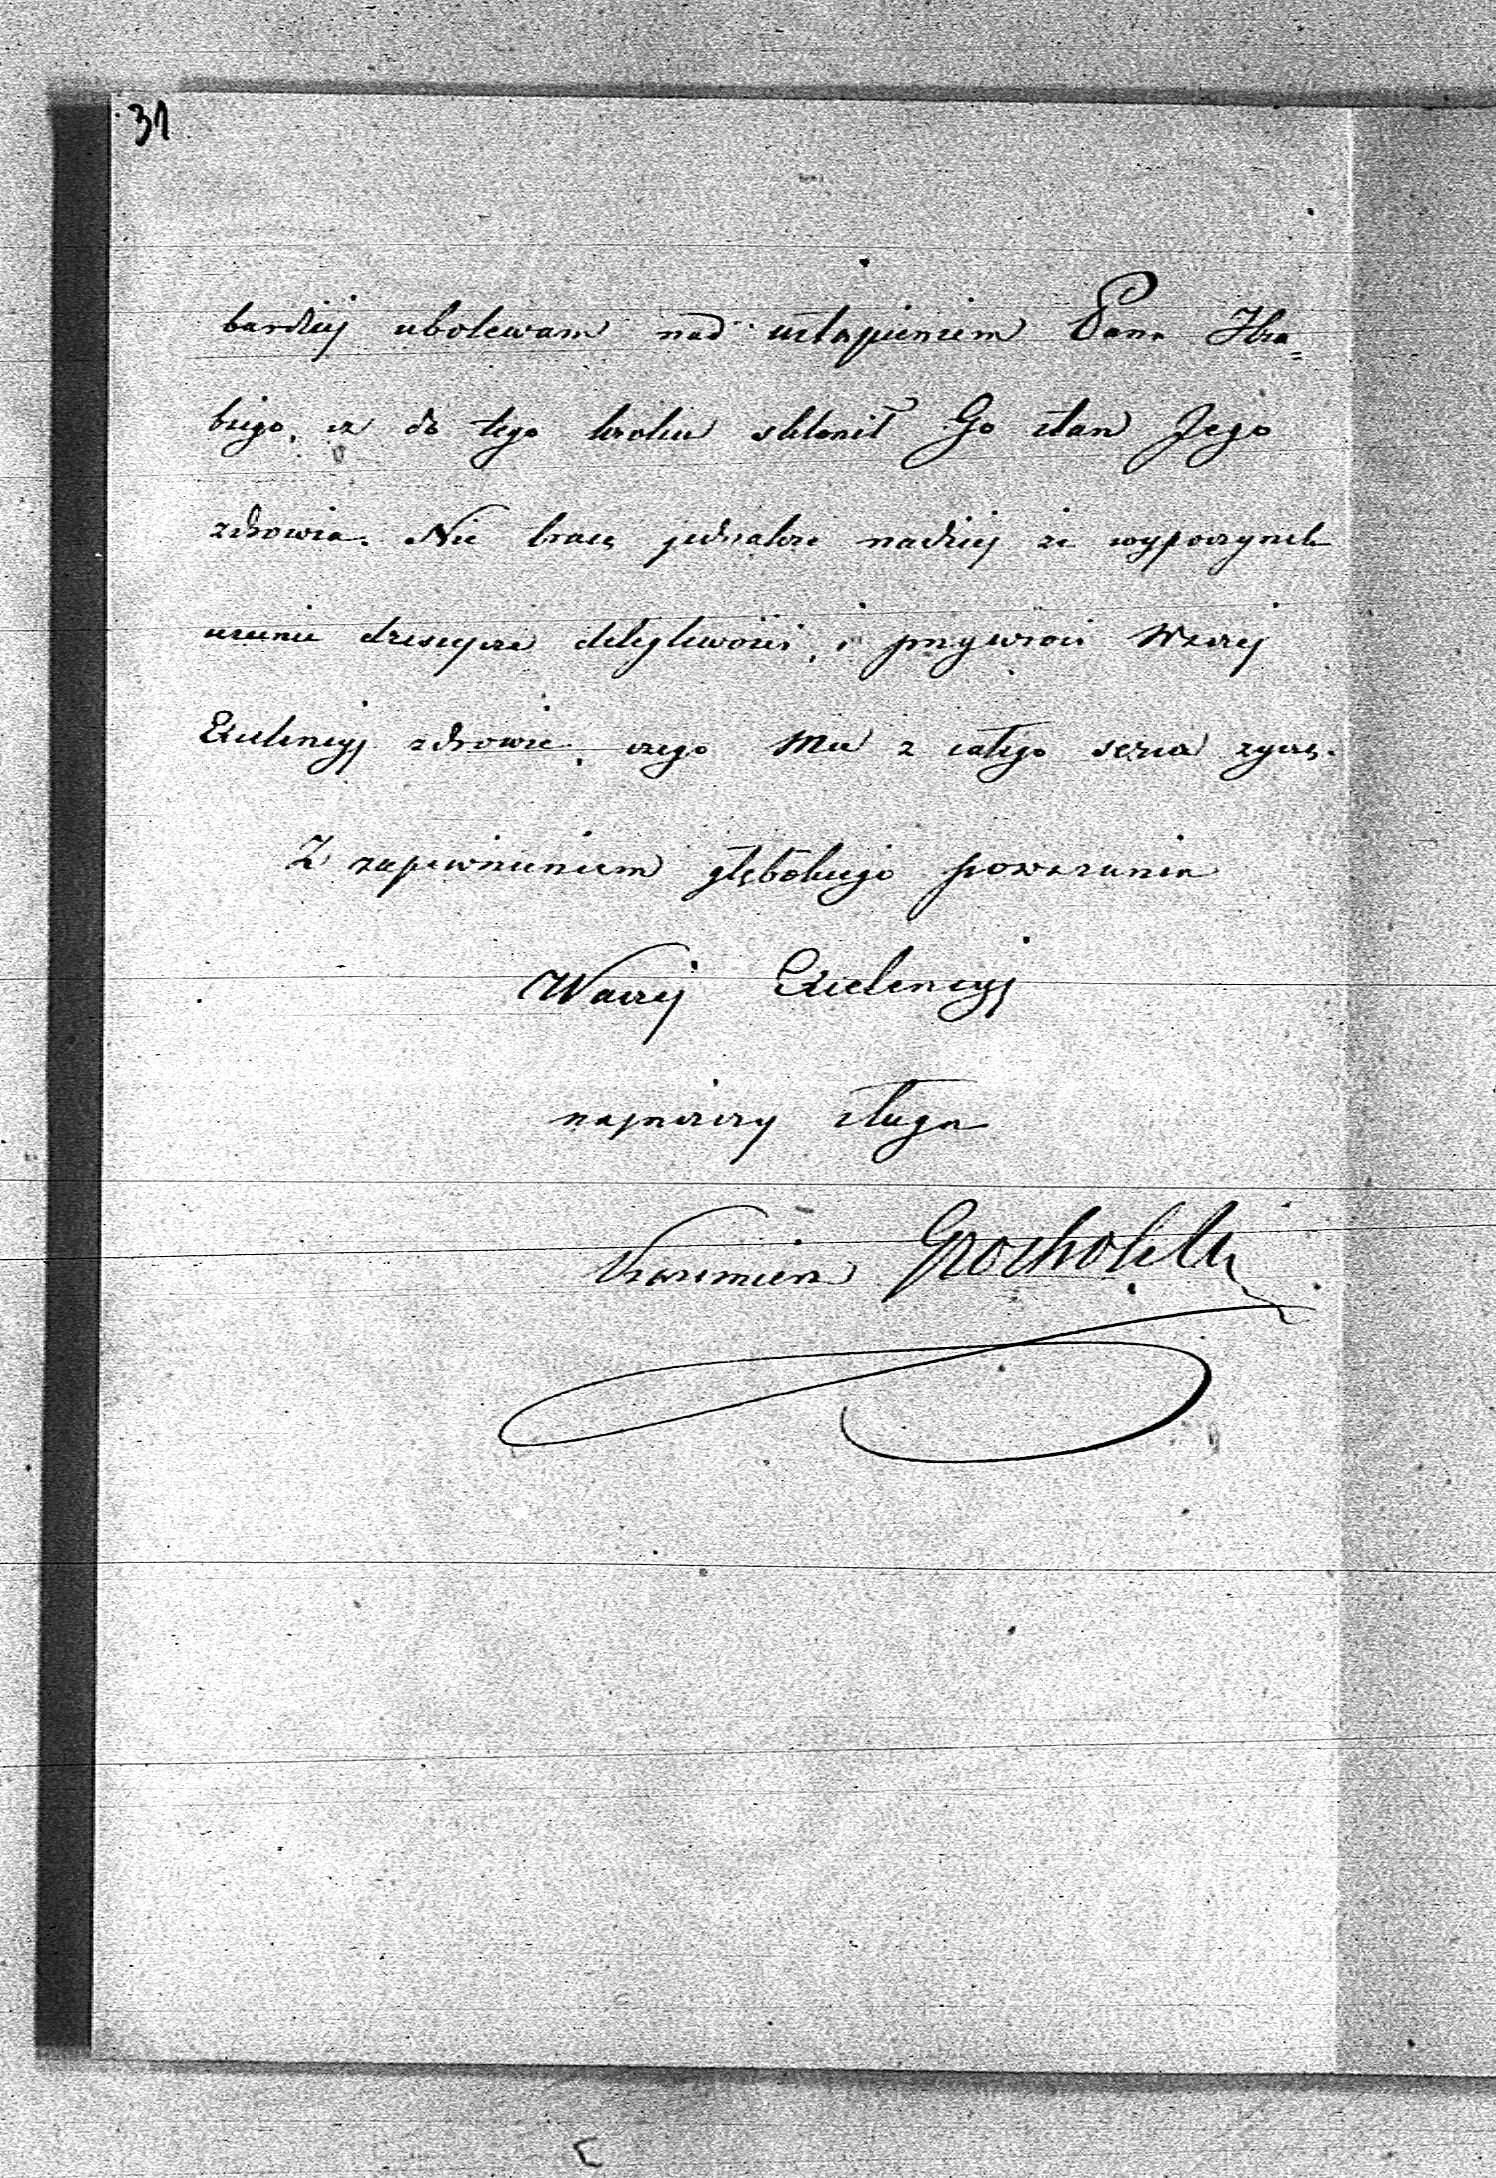 31
bardziej ubolewam nad ustąpieniem Pana Hra=
biego, iż do tego kroku skłonił Go stan Jego
zdrowia. Nie tracę jednakże nadziej że wypoczynek
usunie dzisiejsze dolegliwości, i przywróci Waszej
Excelencyj zdrowie, czego Mu z całego serca życzę.
Z zapewnieniem głębokiego poważania
Waszej Excelencyj
najniższy sługa
Kazimierz Grocholski